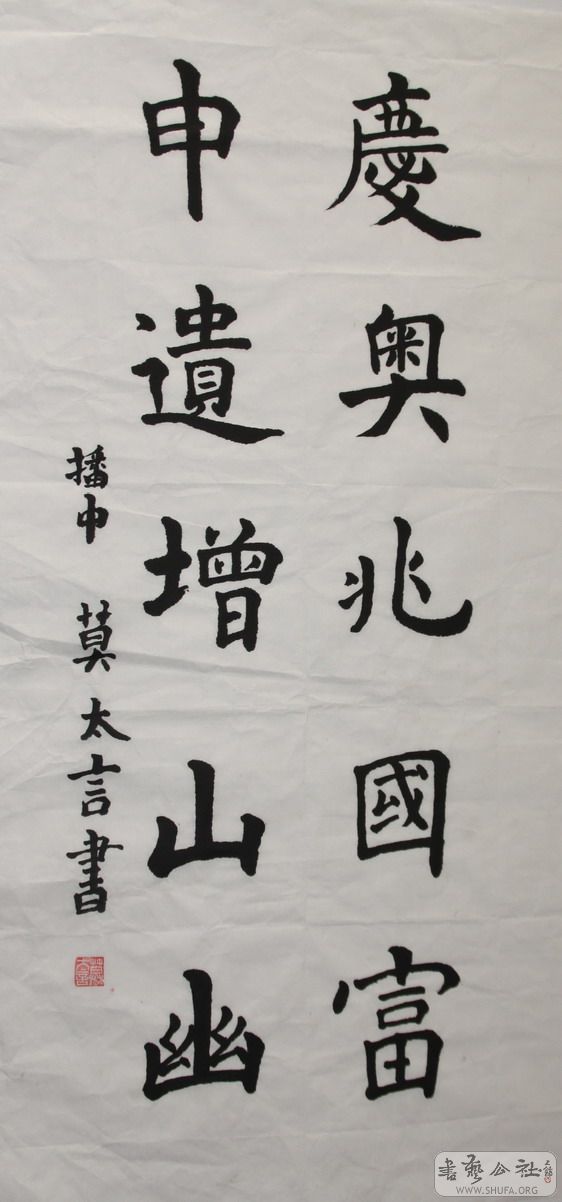 慶奧兆國富
申遺增山幽
播中 莫太言書
書藝公社
WWW.SHUFA.ORG